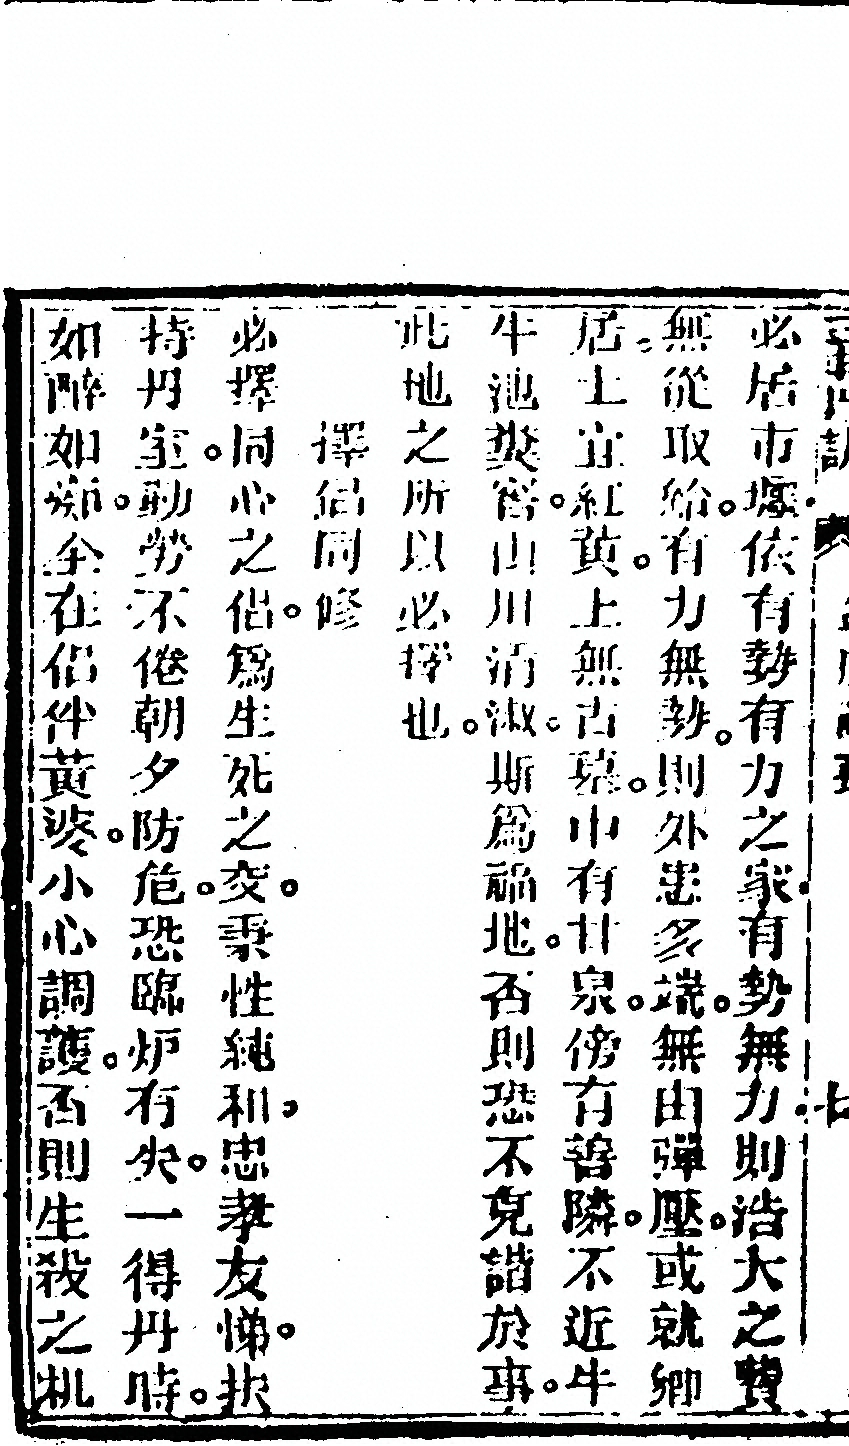 必居市㕓依有勢有力之家有勢無力則浩大之費
無從取給有力無勢則外患多端無由彈壓或就鄉
居土宜紅黃上無古墓中有甘泉傍有善隣不近牛
牛池糞窖山川清淑斯為福地否則恐不克諧於事
此地之所以必擇也
擇侶同修
必擇同心之侶為生死之交秉性純和忠孝友悌扶
持丹室勤勞不倦朝夕防危恐臨炉有失一得丹時
如醉如痴全在侶伴黃婆小心調護否則生殺之机